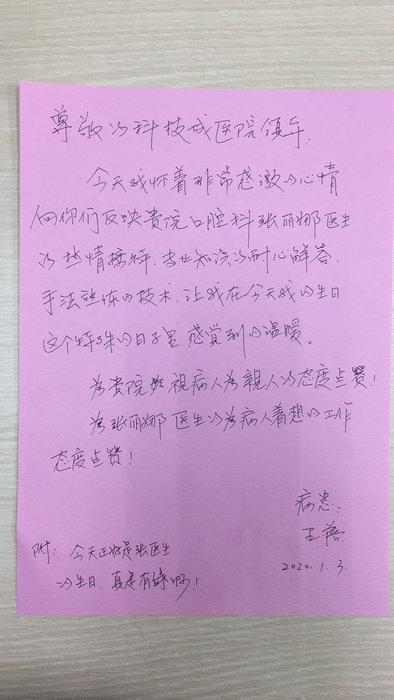 尊敬的科技城医院领导:
今天我怀着非常感激的心情
向你们反映贵院口腔科张丽娜医生
的热情接待,专业知识的耐心解答,
手法熟练的技术,让我在今天我的生日
这个特殊的日子里感觉到的温暖。
为贵院能视病人为親人的态度点赞!
为张丽娜医生的为病人着想的工作
态度点赞!
病患:
王蓓
2020.1.3.
附:今天正好是张医生
的生日,真是有缘啊!